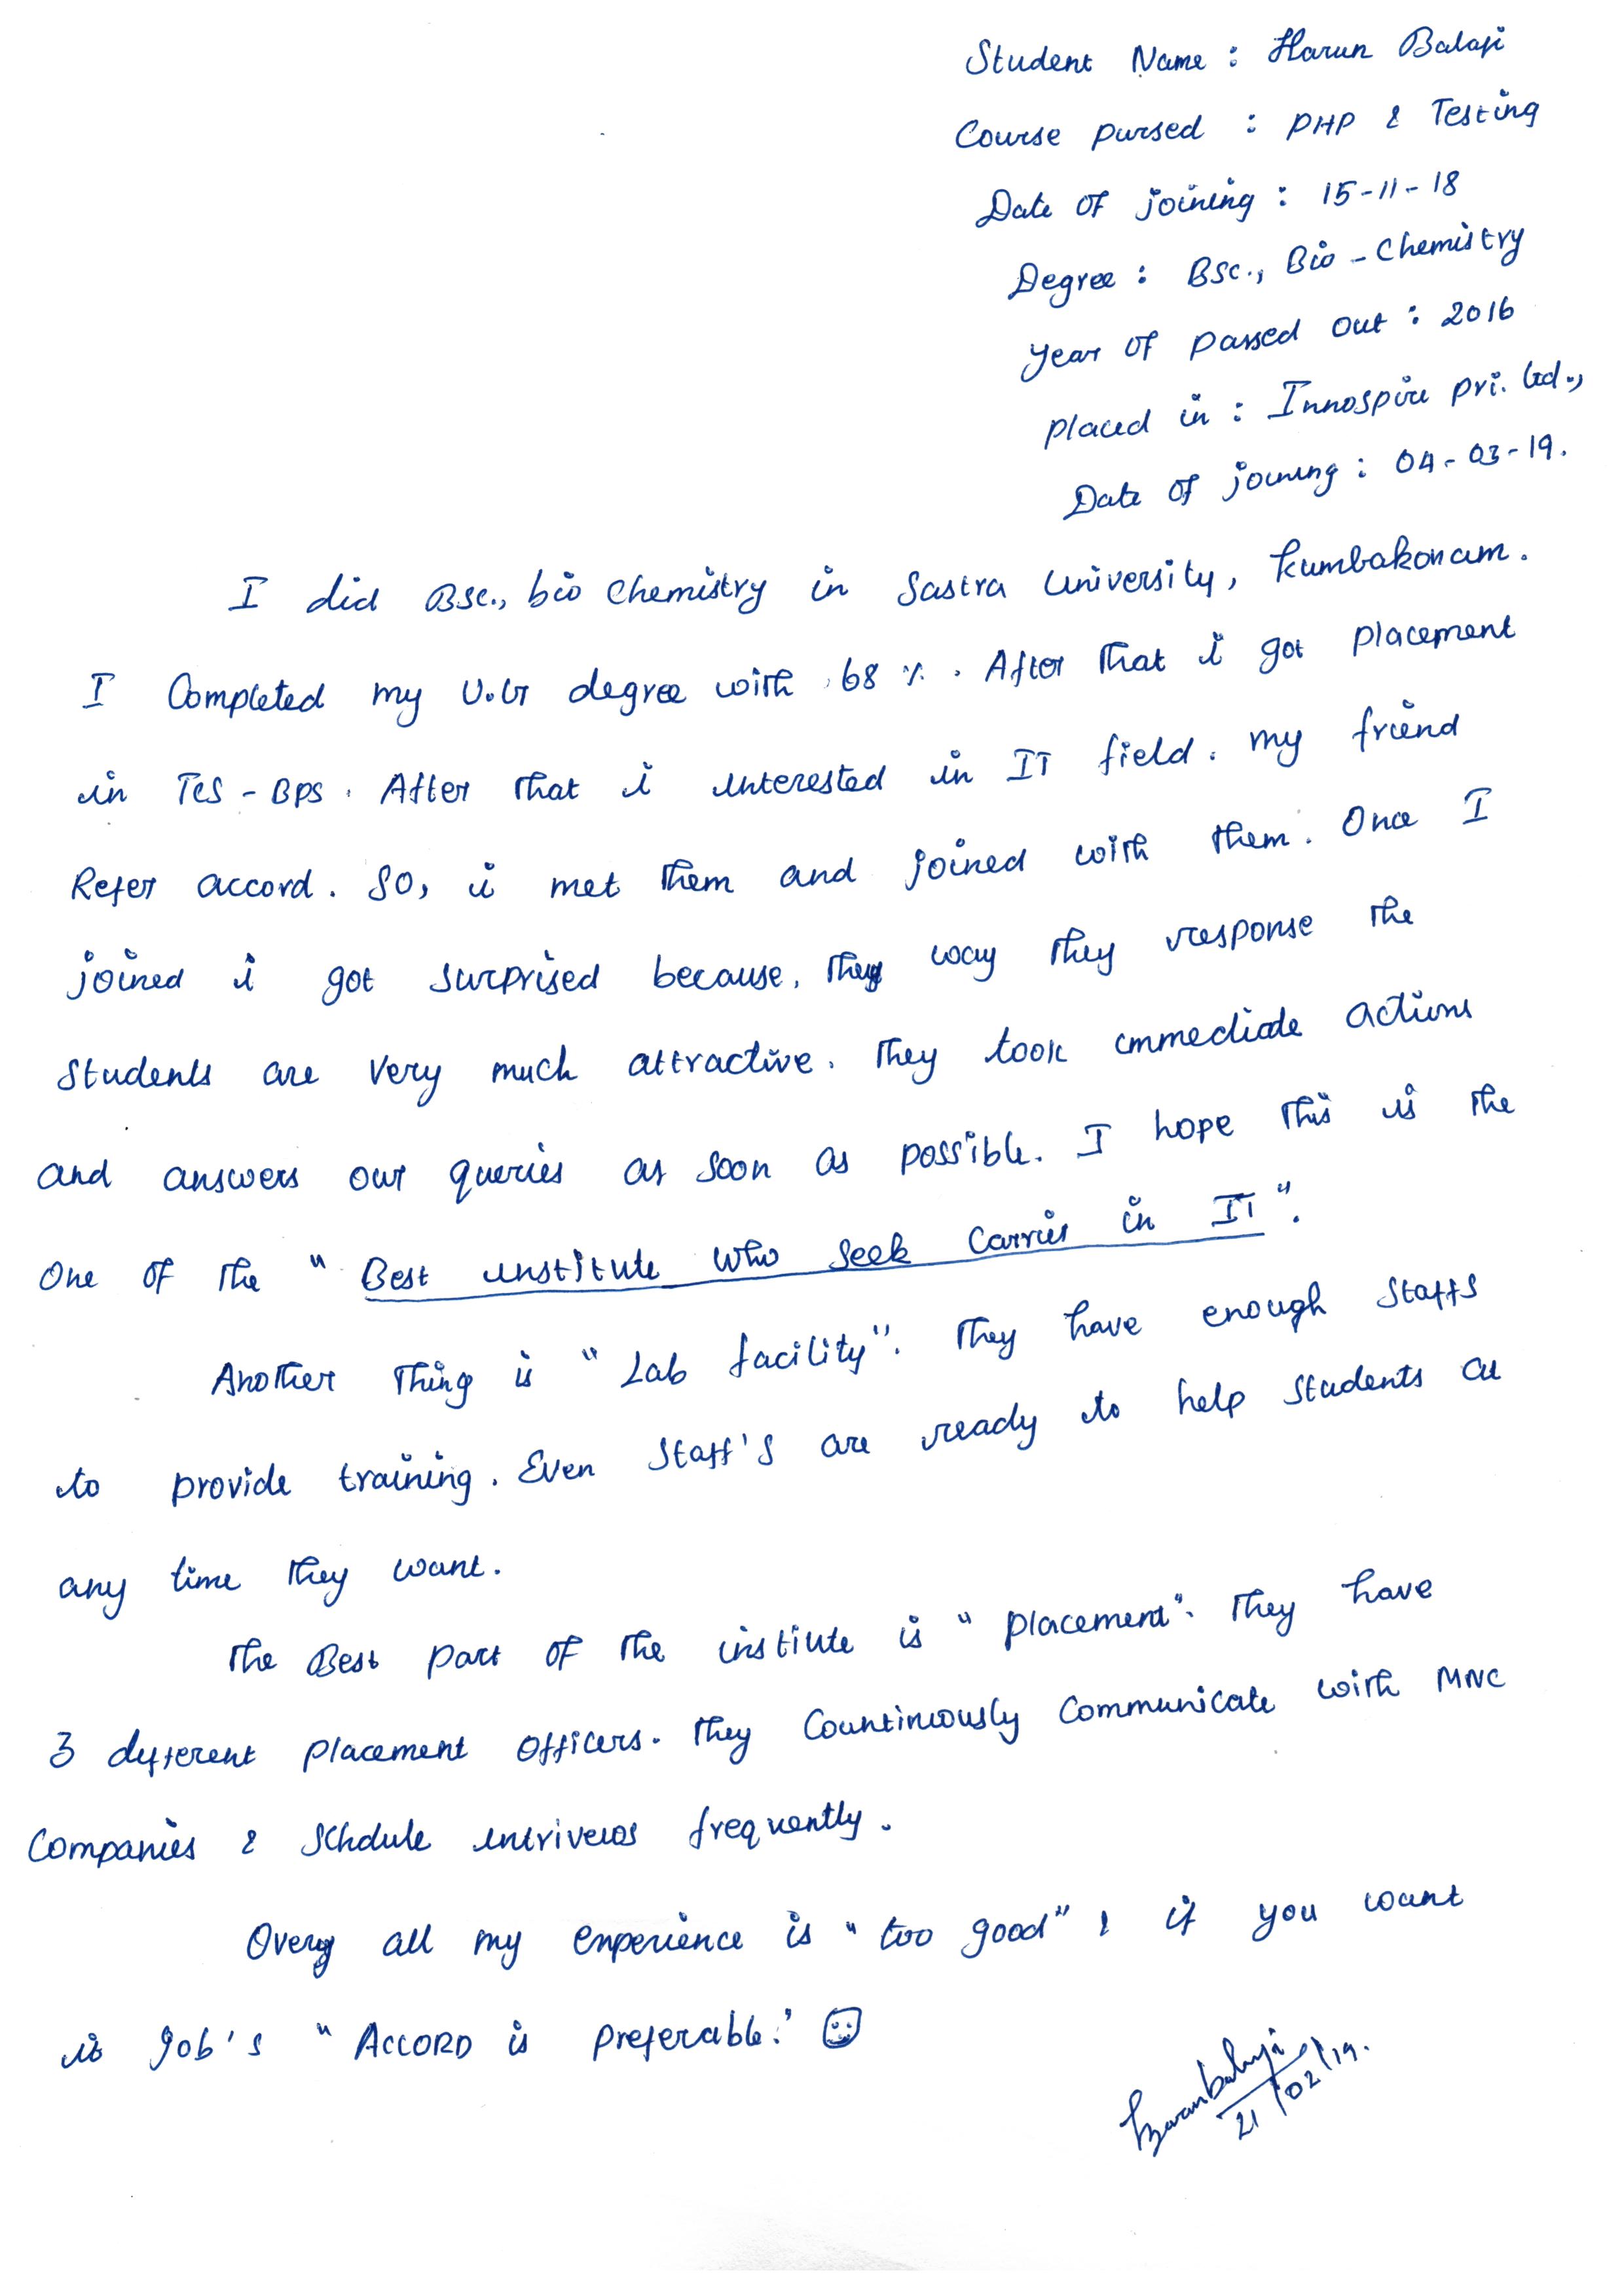 Student Name : Harun Balaji
Course pursed : PHP & Testing
Date of joining : 15-11-18
Degree : BSc., Bio - Chemistry
Year of passed out : 2016
placed in : Innospire pri. Ltd.,
Date of joining : 04-03-19.
I did BSc., bio chemistry in Sastra University, kumbakonam.
I Completed my U.G degree with 68 %. After that i got placement
in TCS - BPS. After that i interested in IT field. my friend
Refer accord. So, i met them and joined with them. Once I
joined i got surprised because, they way they response the
students are very much attractive. They took immediate actions
and answers our queries as soon as possible. I hope this is the
One of the "Best institute who seek Carries in IT".
Another thing is "Lab facility". They have enough staffs
to provide training. Even staff's are ready to help students at
any time they want.
The Best part of the instiute is "placement". They have
3 different placement officers. They Countinuously communicate with MNC
Companies & Schdule intrivews frequently.
Overy all my experience is "too good" & if you want
is job's "ACCORD is preferable."
Harunbalaji
21/02/19.